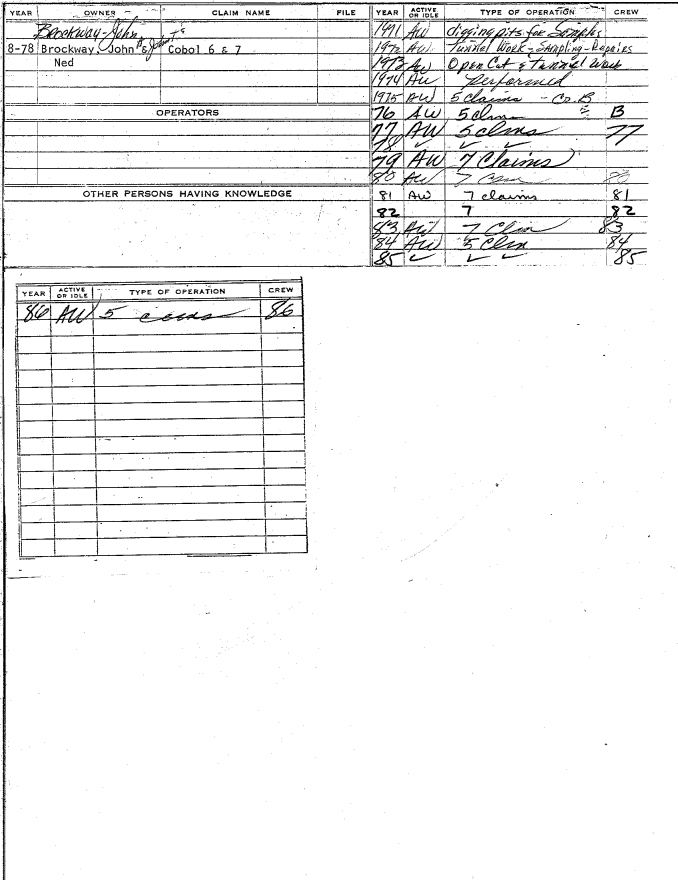 YEAR OWNER CLAIM NAME FILE YEAR ACTIVE OR IDLE TYPE OF OPERATION CREW
Brockway-John
8-78 Brockway, John A & John T's Cobol 6 & 7
Ned
OPERATORS
OTHER PERSONS HAVING KNOWLEDGE
1971 AW digging pits for Samples
1972 AW Tunnel Work-Sampling-Repairs
1973 AW Open Cut & tunnel work
1974 AW performed
1975 AW 5 claims - Co. B
76 AW 5 clms B
77 AW 5 clms 77
78 ✓ ✓ ✓
79 AW 7 Claims
80 AW 7 Clm 80
81 AW 7 claims 81
82 7 82
83 AW 7 Clm 83
84 AW 5 Clm 84
85 ✓ ✓ ✓ 85
YEAR ACTIVE OR IDLE TYPE OF OPERATION CREW
86 AW 5 86